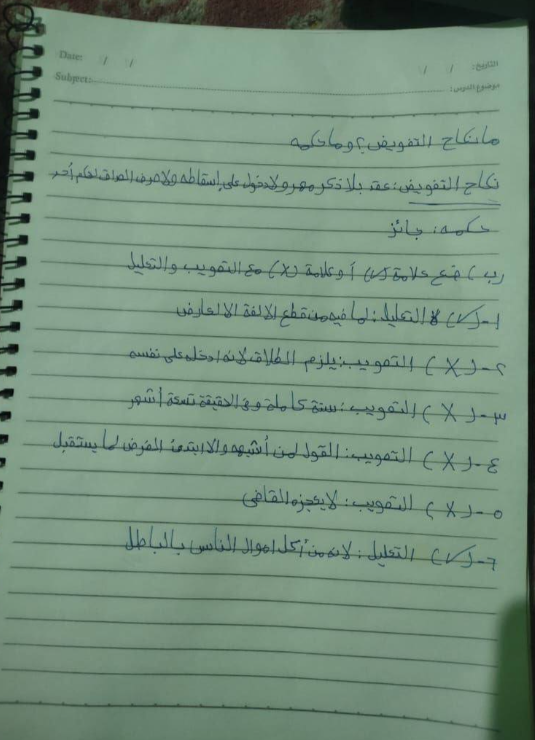 التاريخ: / /
Date: / /
موضوع الدرس:
Subject:
ما نكاح التفويض؟ وما حكمه
نكاح التفويض: عقد بلا ذكر مهر ولا دخول على إسقاطه ولا صرف الصداق لحكم أحد
حكمه: جائز
(ب) ضع علامة (√) أو علامة (X) مع التصويب والتعليل
١- (√) التعليل: لما فيه من قطع الالفة الا لعارض
٢- (X) التصويب: يلزم الطلاق لانه ادخله على نفسه
٣- (X) التصويب: سنة كاملة وفى الحقيقة تسعة أشهر
٤- (X) التصويب: القول لمن أشبهه والا ابتدئ الفرض لما يستقبل
٥- (X) التصويب: لا يعجزه القاضى
٦- (√) التعليل: لانه من أكل اموال الناس بالباطل